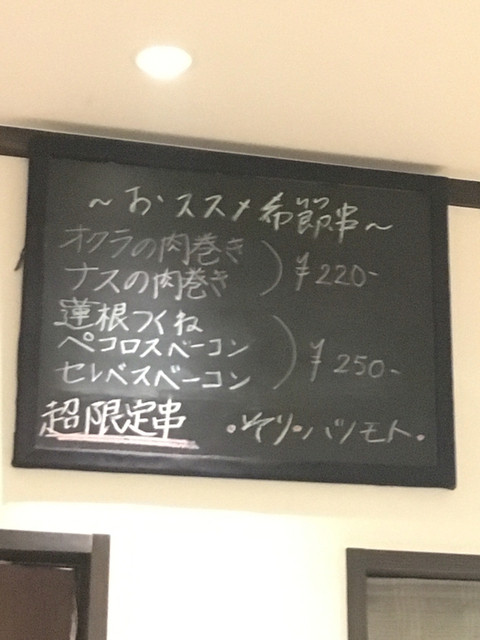 ~おススメ希節串~
オクラの肉巻き
ナスの肉巻き
¥220-
蓮根つくね
ペコロスベーコン
セレベスベーコン
¥250-
超限定串
・そり・ハツモト・